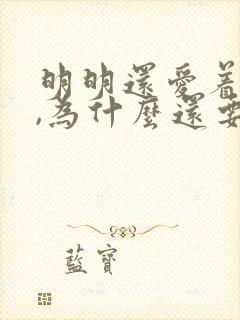 明明還愛着
,為什麼還要
藍寶